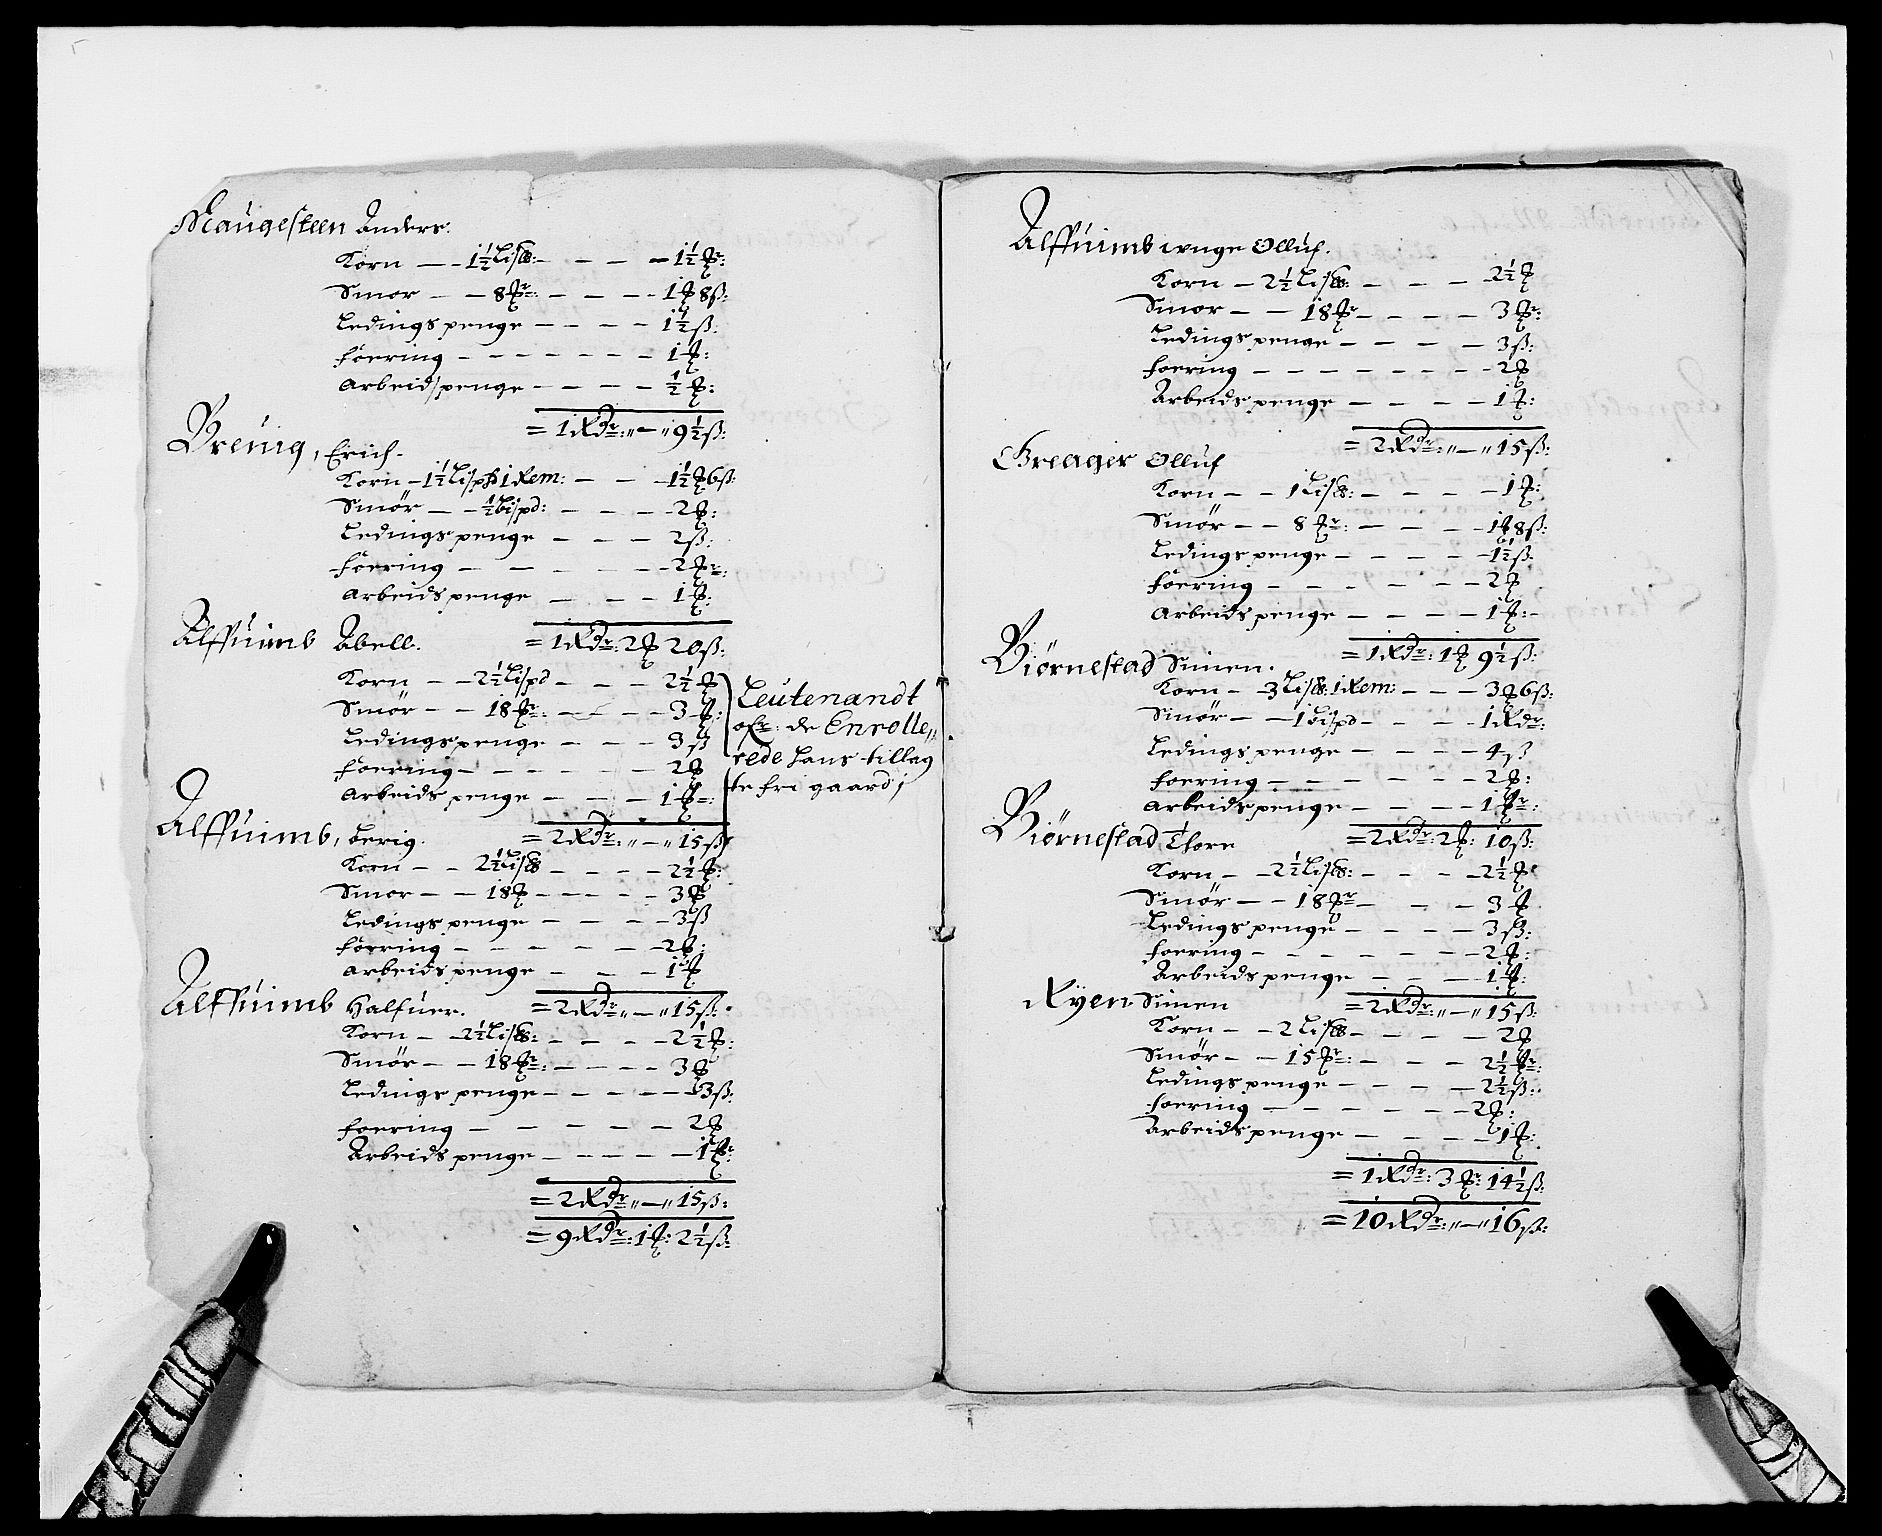 Maugesteen Anders:
Korn — 1½ Lis℔: — — — 1½ ℳ:
Smör — — 8 ℳr: — — — 1 ℳ 8 ß:
Ledings penge — — — — 1½ ß:
foering — — — — — — 1 ℳ:
Arbeids penge — — — — ½ ℳ:
= 1 Rdr: „ — „ 9½ ß:
Breuig, Erich.
Korn — 1½ Lisp̶ 1 Rem: — — 1½ ℳ 6 ß:
Smör — — ½ Lispd: — — — 2 ℳ:
Ledings penge — — — 2 ß:
foering — — — — — 2 ℳr:
Arbeids penge — — — 1 ℳ:
= 1 Rdr: 2 ℳ 20 ß:
Alffuimb Abell.
Korn — — 2½ Lispd — — — 2½ ℳ
Smör — — 18 ℳr: — — — 3 ℳ:
Ledings penge — — — 3 ß
foering — — — — — — 2 ℳ
Arbeids penge — — — 1 ℳ:
= 2 Rdr: „ — „ 15 ß
Leutenandt
ofr: de Enrolle„
rede hans tillag
te fri gaard;
Alffuimb, berig.
Korn — — 2½ Lis℔ — — — 2½ ℳ:
Smör — — 18 ℳ — — — — 3 ℳ
Ledings penge — — — — 3 ß
foering — — — — — — 2 ℳ:
Arbeids penge — — — 1 ℳ
= 2 Rdr „ — „ 15 ß:
Alffuimb Halfuer.
Korn — — 2½ Lis℔: — — — 2½ ℳ:
Smör — — 18 ℳr: — — — — 3 ℳ
Ledings penge — — — — — 3 ß:
foering — — — — — — 2 ℳ
Arbeids penge — — — — — 1 ℳr:
= 2 Rdr „ — „ 15 ß:
= 9 Rdr: 1 ℳ: 2½ ß:
Alffuimb unge Olluf.
Korn — 2½ Lis℔: — — — 2½ ℳ
Smör — — 18 ℳr — — — — 3 ℳr:
Ledings penge — — — — 3 ß:
foering — — — — — — — 2 ℳ
Arbeids penge — — — — 1 ℳ:
= 2 Rdr: „ — „ 15 ß:
Greager Olluf
Korn — — 1 Lis℔: — — — — 1 ℳ:
Smör — — 8 ℳr: — — — — 1 ℳ 8 ß:
Ledings penge — — — — 1½ ß
foering — — — — — — 2 ℳ
Arbeids penge — — — — 1 ℳ: —
= 1 Rdr: 1 ℳ 9½ ß:
Biörnestad Simen.
Korn — 3 Lis℔: 1 Rem: — — — 3 ℳ 6 ß:
Smör — — 1 Lispd — — — — 1 Rdr:
Ledings penge — — — — 4 ß
foering — — — — — — 2 ℳ:
Arbeids penge — — — — 1 ℳr:
= 2 Rdr: 2 ℳ: 10 ß:
Biörnestad Thore
Korn — — 2½ Lis℔: — — — 2½ ℳ
Smör — — 18 ℳr — — — — 3 ℳ
Ledings penge — — — — 3 ß:
foering — — — — — — — 2 ℳ:
Arbeids penge — — — 1 ℳ:
= 2 Rdr: „ — „ 15 ß:
Ryen Simen
Korn — — 2 Lis℔ — — — — 2 ℳ
Smör — — 15 ℳr: — — — — 2½ ℳr:
Ledings penge — — — — 2½ ß:
foering — — — — — — 2 ℳ:
Arbeids penge — — — — 1 ℳ:
= 1 Rdr: 3 ℳr: 14½ ß:
= 10 Rdr: „ — „ 16 ß: